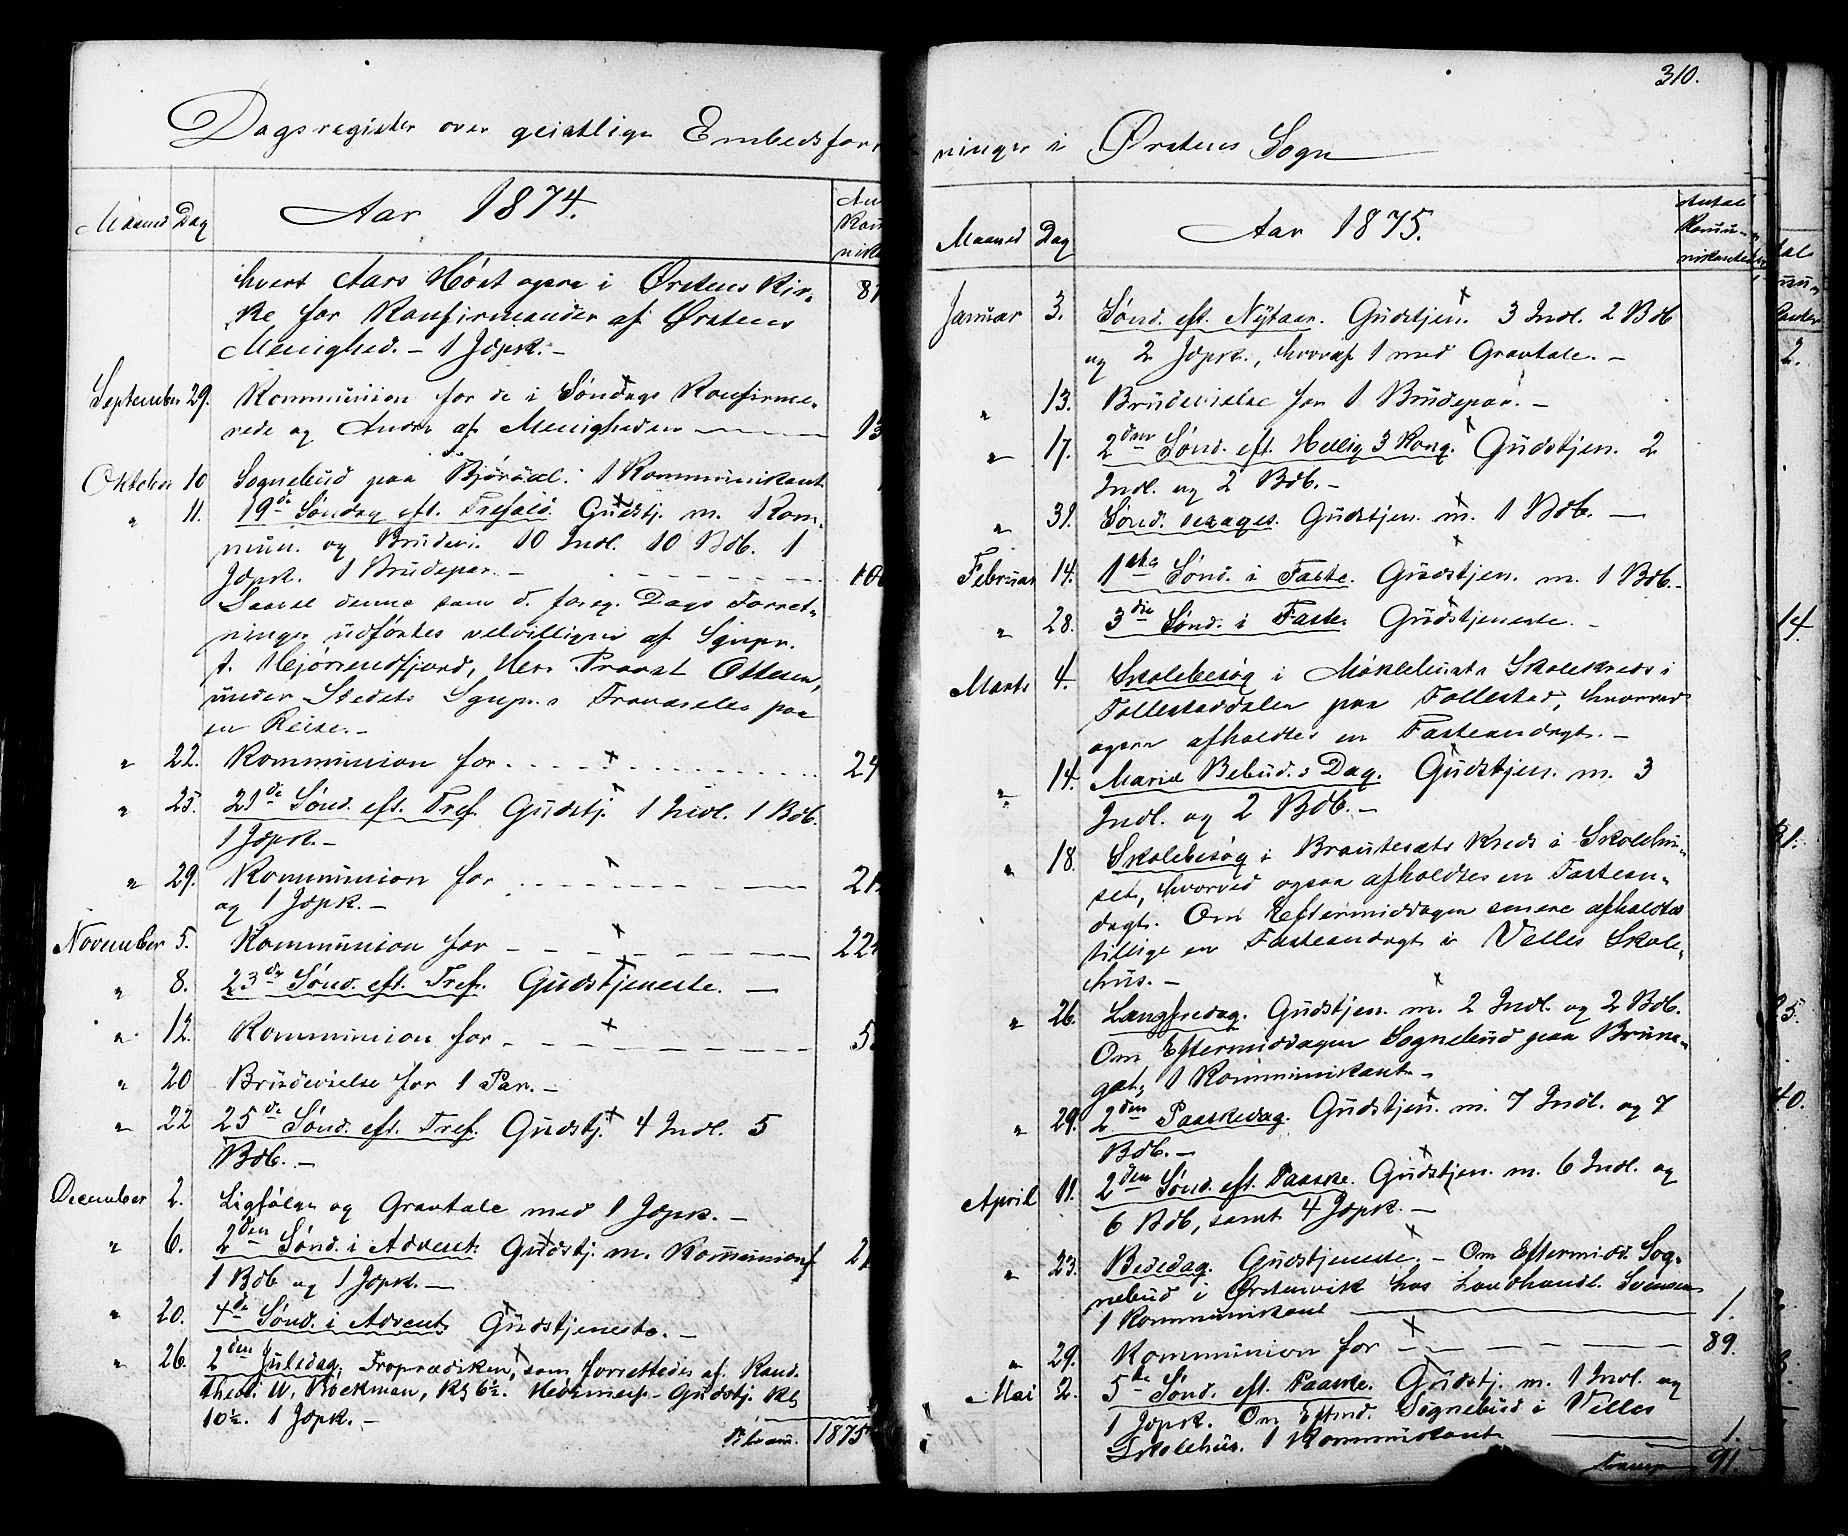 310.
Dagsregister over geistlige Embedsfor
Maaned Dag Aar 1874.
hvert Aars Høst ogsaa i Ørstens Kir-
ke for Konfirmander af Ørstens
Menighed. – 1 Jdpk. –
September 29. Kommunion for de i Søndags Konfirme-
rede og Andre af Menigheden
Oktober 10 Sognebud paa Bjørdal. 1 Kommunikant
" 11. 19de Søndag eft. Trefold. Gudstj. m. Kom-
mun. og Brudevi. 10 Indl. 10 Bdb. 1
Jdpk. 1 Brudepar. –
Saavel denne som d. foreg. Dags Forret-
ninger udførtes velvilligen af Sgnpr.
t. Hjørendfjord, Herr Provst Ottesen,
under Stedets Sgnpr.s Fraværelse paa
en Reise. –
" 22. Kommunion for
" 25. 21de Sønd. eft. Tref. Gudstj. 1 Indl. 1 Bdb.
1 Jdpk. –
" 29. Kommunion for
og 1 Jdpk. –
November 5. Kommunion for 224
" 8. 23de Sønd. eft. Tref. Gudstjeneste. –
" 12. Kommunion for
" 20 Brudevielse for 1 Par. –
" 22 25de Sønd. eft. Tref. Gudstj. 4 Indl. 5
Bdb. –
December 2. Ligfølge og Gravtale med 1 Jdpk. –
" 6. 2den Sønd. i Advent. Gudstj. m. Kommunion f.
1 Bdb og 1 Jdpk. –
" 20. 4de Sønd. i Advent. Gudstjeneste. –
" 26. 2den Juledag. Froprædiken, som forrettedes af Kand.
theol. W. Böckman, Kl. 6½. Høimesse-Gudstj. Kl.
10½. 1 Jdpk. –
1875
ninger i Ørstens Sogn
Maaned Dag Aar 1875. Antal
Kommu-
nikanter
Januar 3. Sønd. eft. Nytaar. Gudstjen. 3 Indl. 2 Bdb
og 2 Jdpk., hvoraf 1 med Gravtale. –
" 13. Brudevielse for 1 Brudepar. –
" 17. 2den Sønd. eft. Hellig 3 Kong. Gudstjen. 2
Indl. og 2 Bdb. –
" 31. Sønd. sexages. Gudstjen. m. 1 Bdb. –
Februar 14. 1ste Sønd. i Faste. Gudstjen. m. 1 Bdb. –
" 28. 3die Sønd. i Faste. Gudstjeneste. –
Marts 4. Skolebesøg i Møklebusts Skolekreds i
Follestaddalen paa Follestad, hvorved
ogsaa afholdtes en Fasteandagt. –
" 14. Mariæ Bebud.s Dag. Gudstjen. m. 3
Indl. og 2 Bdb. –
" 18. Skolebesøg i Brautesæts Kreds i Skolehu-
set, hvorved ogsaa afholdtes en Fastean-
dagt. Om Eftermiddagen senere afholdtes
tillige en Fasteandagt i Velles Skole-
hus. –
" 26. Langfredag. Gudstjen. m. 2 Indl. og 2 Bdb.
Om Eftermiddagen Sognebud paa Brune-
gat, 1 Kommunikant –
" 29. 2den Paaskedag. Gudstjen. m. 7 Indl. og 7
Bdb. –
April 11. 2den Sønd. eft. Paaske. Gudstjen. m. 6 Indl. og
6 Bdb, samt 4 Jdpk. –
" 23. Bededag. Gudstjeneste. – Om Eftermidd. Sog-
nebud i Ørstenvik hos Landhandl. Svensen
1 Kommunikant 1.
" 29. Kommunion for 89.
Mai 2. 5te Sønd. eft. Paaske. Gudstj. m. 1 Indl. og
1 Jdpk. Om Eftmd. Sognebud i Velles
Skolehus. 1 Kommunikant 1.
91.